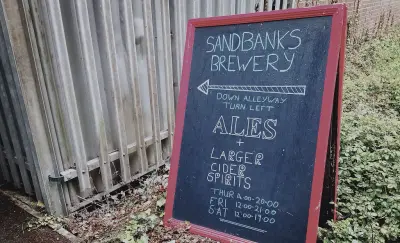 SANDBANKS
BREWERY
DOWN ALLEYWAY
TURN LEFT
ALES
+
LARGER
CIDER
SPIRITS
THUR 14.00-20.00
FRI 12.00-21.00
SAT 12.00-17.00